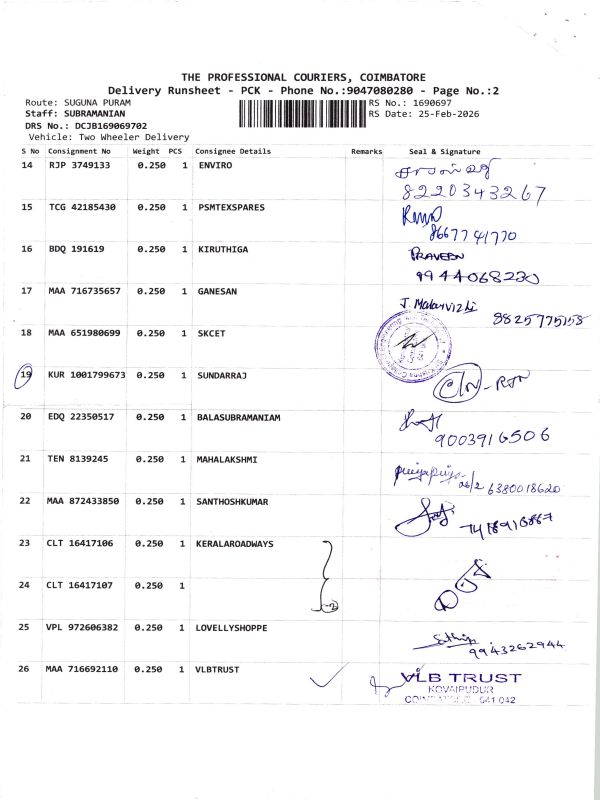 THE PROFESSIONAL COURIERS, COIMBATORE
Delivery Runsheet - PCK - Phone No.:9047080280 - Page No.:2
Route: SUGUNA PURAM
RS No.: 1690697
Staff: SUBRAMANIAN
RS Date: 25-Feb-2026
DRS No.: DCJB169069702
Vehicle: Two Wheeler Delivery
S No Consignment No Weight PCS Consignee Details Remarks Seal & Signature
14 RJP 3749133 0.250 1 ENVIRO
8220343267
15 TCG 42185430 0.250 1 PSMTEXSPARES
8667741770
16 BDQ 191619 0.250 1 KIRUTHIGA PRAVEEN
9944068230
17 MAA 716735657 0.250 1 GANESAN J. Malarvizhi 9825775158
18 MAA 651980699 0.250 1 SKCET
19 KUR 1001799673 0.250 1 SUNDARRAJ
20 EDQ 22350517 0.250 1 BALASUBRAMANIAM
9003916506
21 TEN 8139245 0.250 1 MAHALAKSHMI
26/2 6380018620
22 MAA 872433850 0.250 1 SANTHOSHKUMAR
23 CLT 16417106 0.250 1 KERALAROADWAYS
24 CLT 16417107 0.250 1
25 VPL 972606382 0.250 1 LOVELLYSHOPPE
9943262944
26 MAA 716692110 0.250 1 VLBTRUST VLB TRUST
KOVAIPUDUR
COIMBATORE 641 042